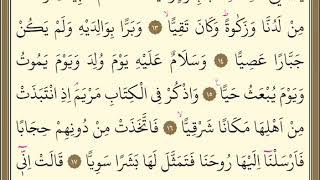 مِنْ لَدُنَّا وَزَكٰوةًۜ وَكَانَ تَقِيًّاۙ ﴿١٣﴾ وَبَرًّا بِوَالِدَيْهِ وَلَمْ يَكُنْ
جَبَّارًا عَصِيًّا ﴿١٤﴾ وَسَلَامٌ عَلَيْهِ يَوْمَ وُلِدَ وَيَوْمَ يَمُوتُ
وَيَوْمَ يُبْعَثُ حَيًّا۟ ﴿١٥﴾ وَاذْكُرْ فِي الْكِتَابِ مَرْيَمَۢ اِذِ انْتَبَذَتْ
مِنْ اَهْلِهَا مَكَانًا شَرْقِيًّاۙ ﴿١٦﴾ فَاتَّخَذَتْ مِنْ دُونِهِمْ حِجَابًا
فَاَرْسَلْنَٓا اِلَيْهَا رُوحَنَا فَتَمَثَّلَ لَهَا بَشَرًا سَوِيًّا ﴿١٧﴾ قَالَتْ اِنّ۪ٓي